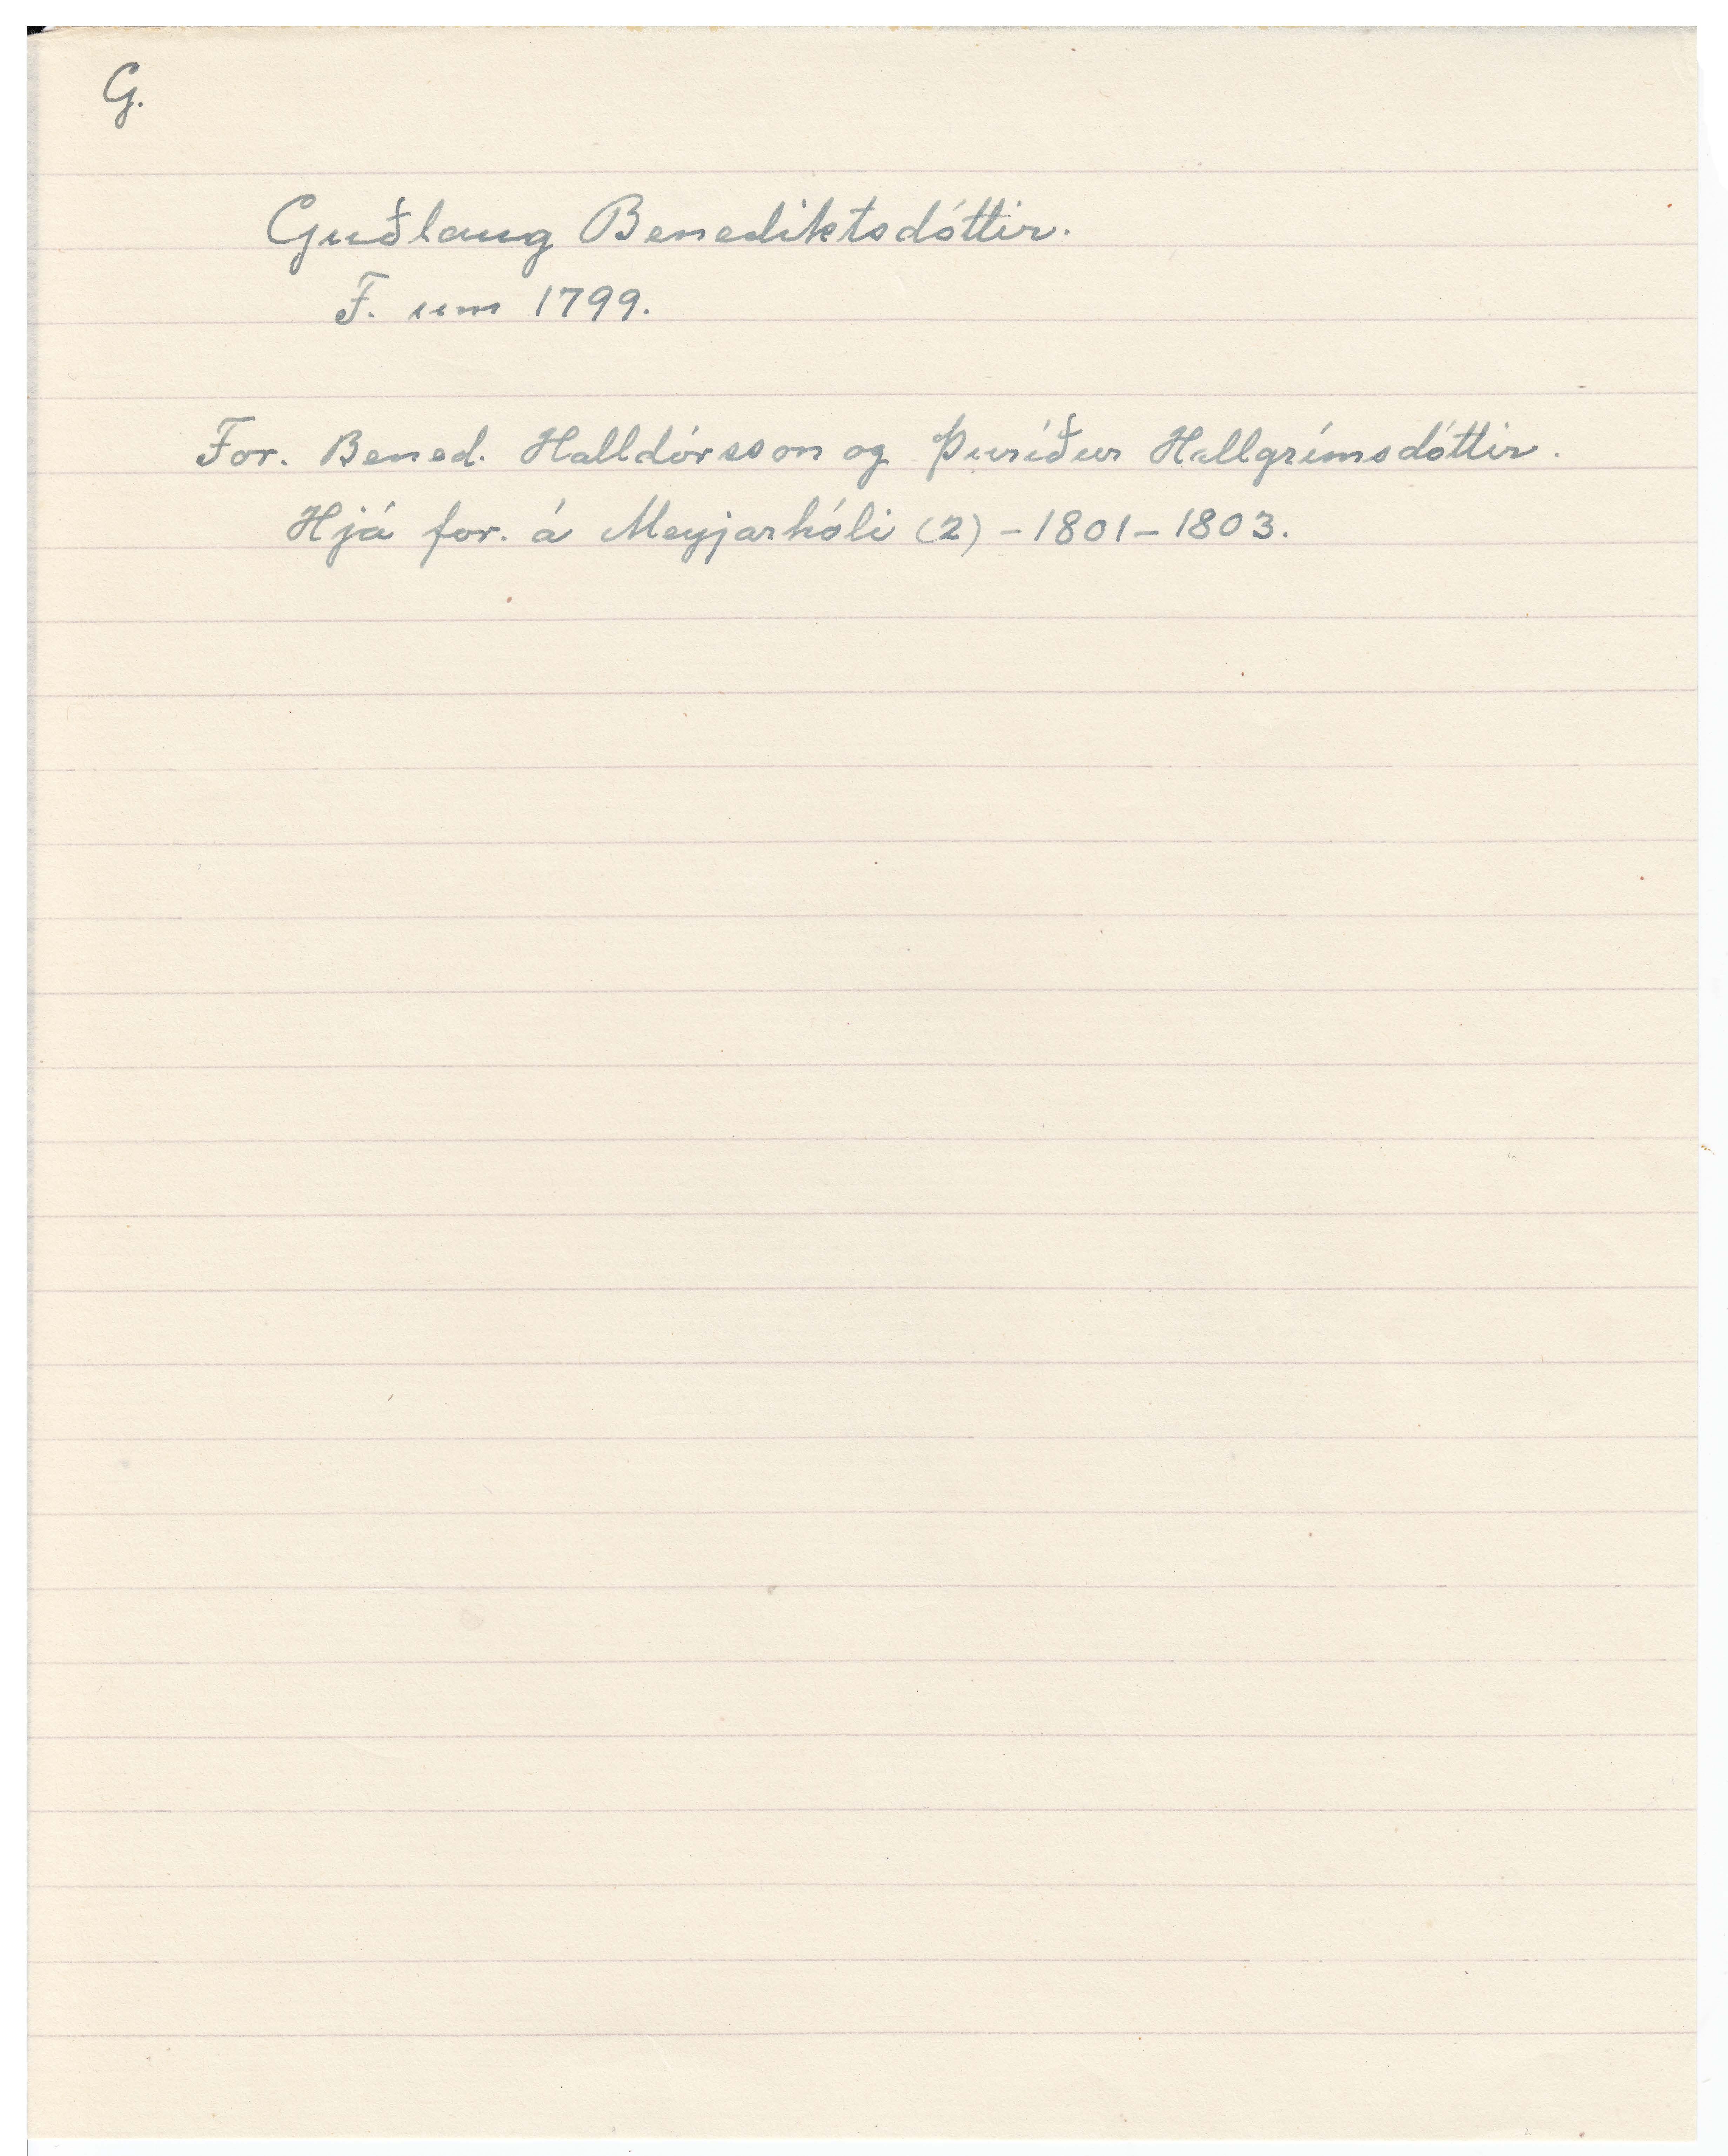 G.
Guðlaug Benediktsdóttir.
F. um 1799.
For. Bened. Halldórsson og Þuríður Hallgrímsdóttir.
Hjá for. á Meyjarhóli (2) - 1801 - 1803.